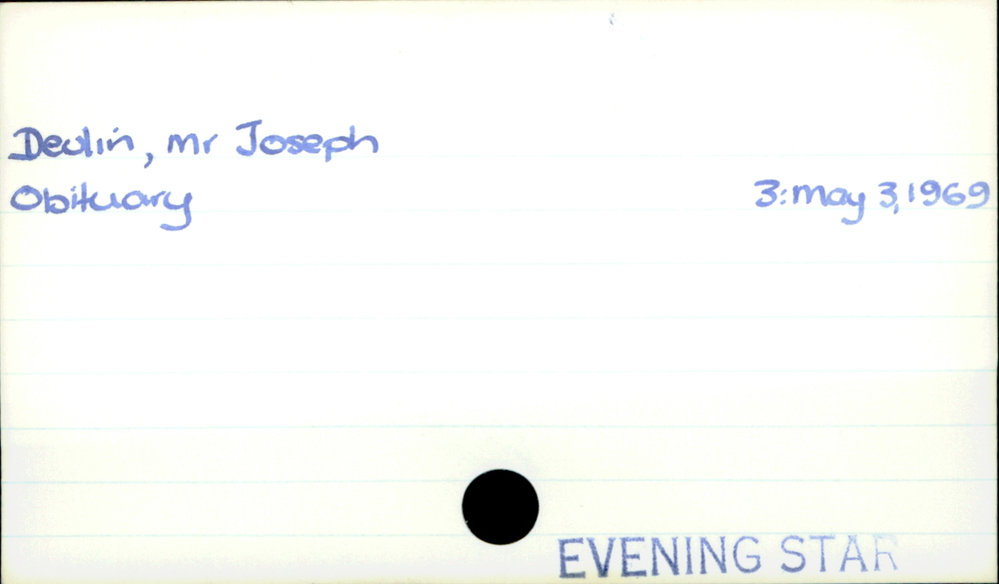 Devlin, Mr Joseph
Obituary 3: May 3, 1969
EVENING STAR